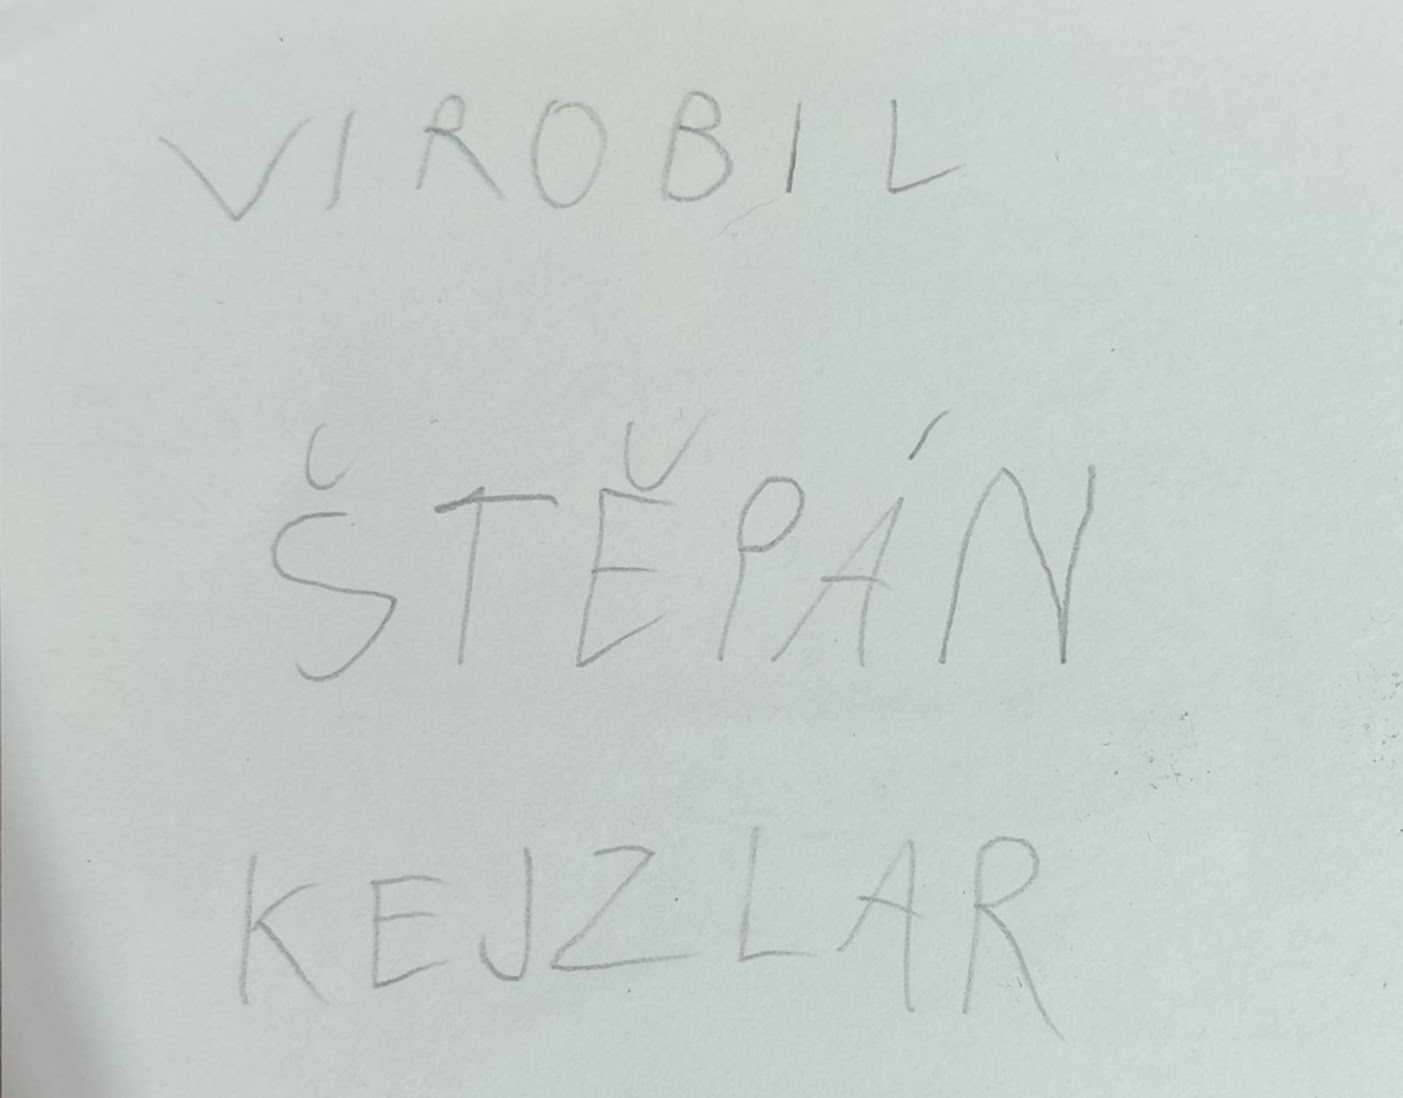 VIROBIL
ŠTĚPÁN
KEJZLAR